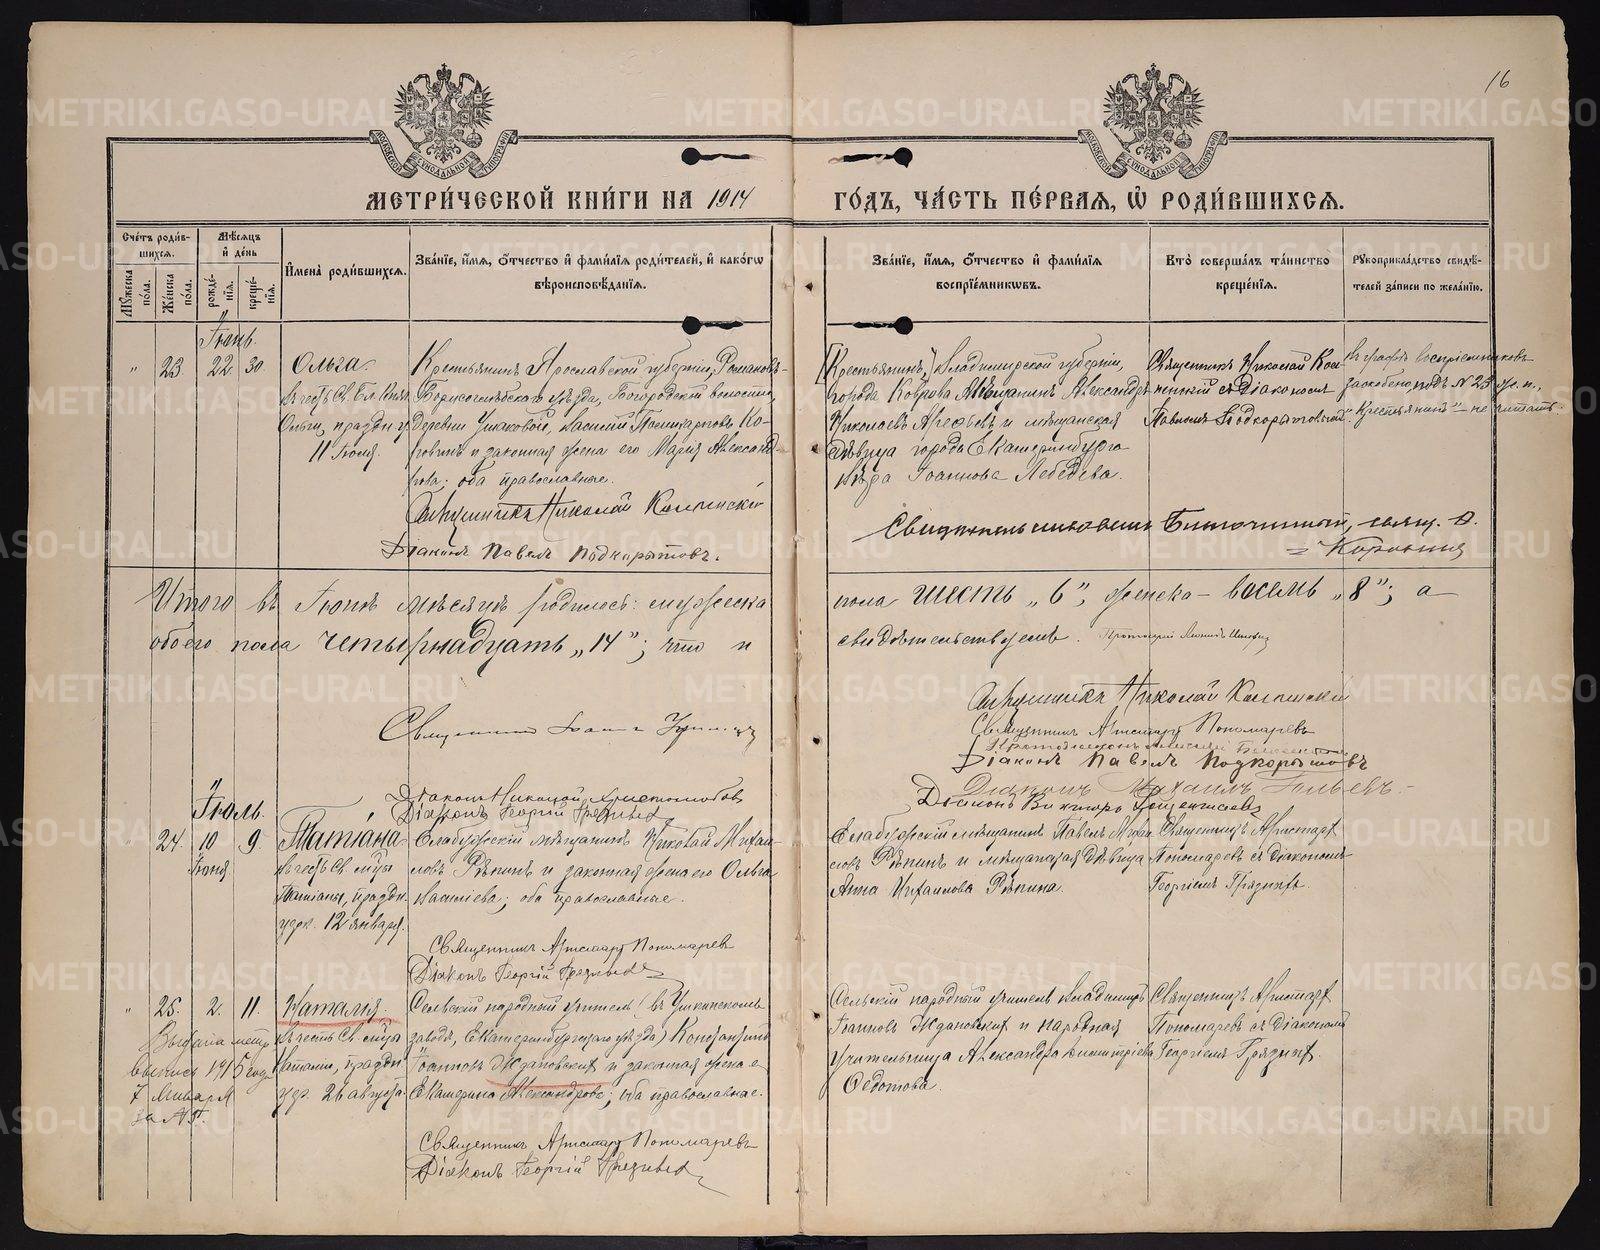 16
МЕТРИ́ЧЕСКОЙ КНИ́ГИ НА 1914 ГО́ДЪ, ЧА́СТЬ ПЕ́РВАЯ, Ѡ РОДИ́ВШИХСЯ.
Сче́тъ роди́в-
шихся.
Мꙋ́жеска по́ла.
Же́нска по́ла.
Мѣ́сяцъ и҆ де́нь
рожде́-
нїя.
креще́-
нїя.
И҆мена̀ роди́вшихся.
Зва́нїе, и҆́мя, ѻ҆́тчество и҆ фами́лїя роди́телей, и҆ како́гѡ
вѣроисповѣ́данїя.
Зва́нїе, и҆́мя, ѻ҆́тчество и҆ фами́лїя
воспрїе́мникѡвъ.
Кто̀ соверша́лъ та́инство
креще́нїя.
Рꙋкоприкла́дство свидѣ́-
телей за́писи по жела́нїю.
Іюнь.
" 23. 22 30
Ольга
въ честь Св. Бл. Княг.
Ольги, праздн.
11 Іюля.
Крестьянинъ Ярославской губерніи, Романов-
Борисоглѣбскаго уѣзда, Богородской волости,
Деревни Ушаковой, Василій
и законная жена его Марія Александ-
рова; оба православные.
Священникъ Николай
Діаконъ Павелъ Подкорытовъ.
[Крестьянинъ] Владимірской губерніи,
города Коврова мѣщанинъ Александръ
Николаевъ Арефьевъ и мѣщанская
дѣвица города Екатеринбурга
Вѣра Іоаннова Лебедева.
Священникъ Николай
съ Діакономъ
Павломъ Подкорытовымъ.
Въ графѣ воспріемниковъ
подъ № 23
"Крестьянинъ" — не читать.
Благочинный, свящ.
Итого въ Іюнѣ мѣсяцѣ родилось: мужеска
пола шесть „6”, женска — восемь „8”; а
обоего пола четырнадцать „14”; что и
свидѣтельствуемъ. Протоіерей
Священникъ Николай
Священникъ Іоаннъ
Священникъ Аристархъ Пономаревъ
Діаконъ Павелъ Подкорытовъ
Діаконъ Николай
Діаконъ Георгій Грязныхъ
Діаконъ Михаилъ
Діаконъ Викторъ
Іюль.
24. 10 9
Іюня
Татіана
въ честь Св. м-цы
Татіаны, праздн.
12 января.
Елабужскій мѣщанинъ Николай Михаи-
ловъ Рѣпинъ и законная жена его Ольга
Васильева; оба православные.
Священникъ Аристархъ Пономаревъ
Діаконъ Георгій Грязныхъ
Елабужскій мѣщанинъ Павелъ Михаи-
ловъ Рѣпинъ и мѣщанская дѣвица
Анна Михаилова Рѣпина.
Священникъ Аристархъ
Пономаревъ съ Діакономъ
Георгіемъ Грязныхъ.
" 25. 2. 11.
Выдана метр.
выпись 1915 года
7 Января
за № 5.
Наталія
въ честь Св. м-цы
Наталіи, праздн.
26 августа.
Сельскій народный учитель (въ
заводѣ, Екатеринбургскаго уѣзда) Константинъ
Іоанновъ Ждановскихъ и законная жена е-
Екатерина Александрова; оба православные.
Священникъ Аристархъ Пономаревъ
Діаконъ Георгій Грязныхъ
Сельскій народный учитель Владиміръ
Іоанновъ Ждановскихъ и народная
учительница Александра Димитріева
Ѳедотова.
Священникъ Аристархъ
Пономаревъ съ Діакономъ
Георгіемъ Грязныхъ.
METRIKI.GASO-URAL.RU